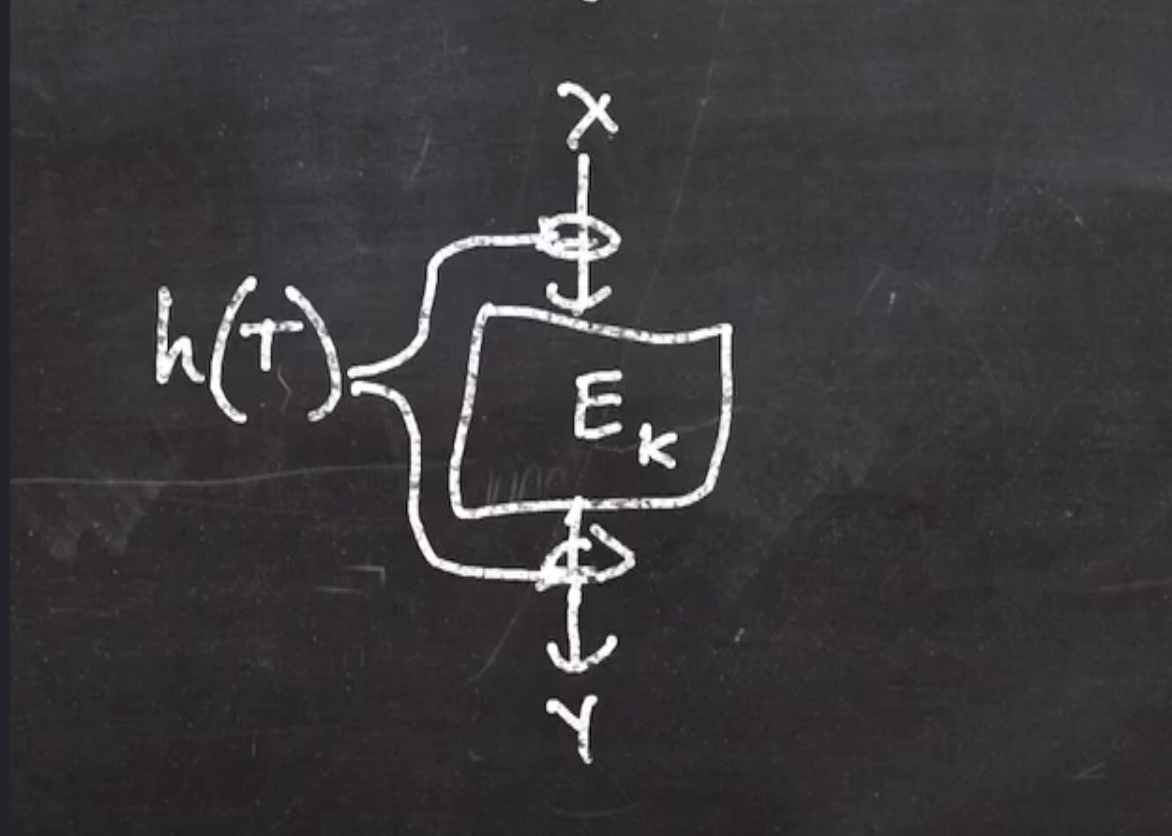 X
h(T)
E_K
Y